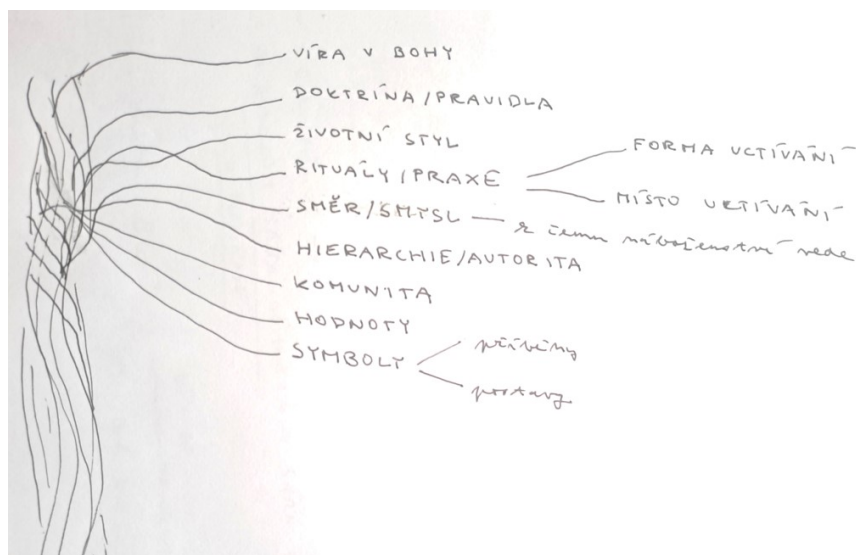 VÍRA V BOHY
DOKTRÍNA/PRAVIDLA
ŽIVOTNÍ STYL
RITUÁLY/PRAXE
FORMA UCTÍVÁNÍ
MÍSTO UCTÍVÁNÍ
SMĚR/SMYSL
k čemu náboženství vede
HIERARCHIE/AUTORITA
KOMUNITA
HODNOTY
SYMBOLY
příběhy
postavy